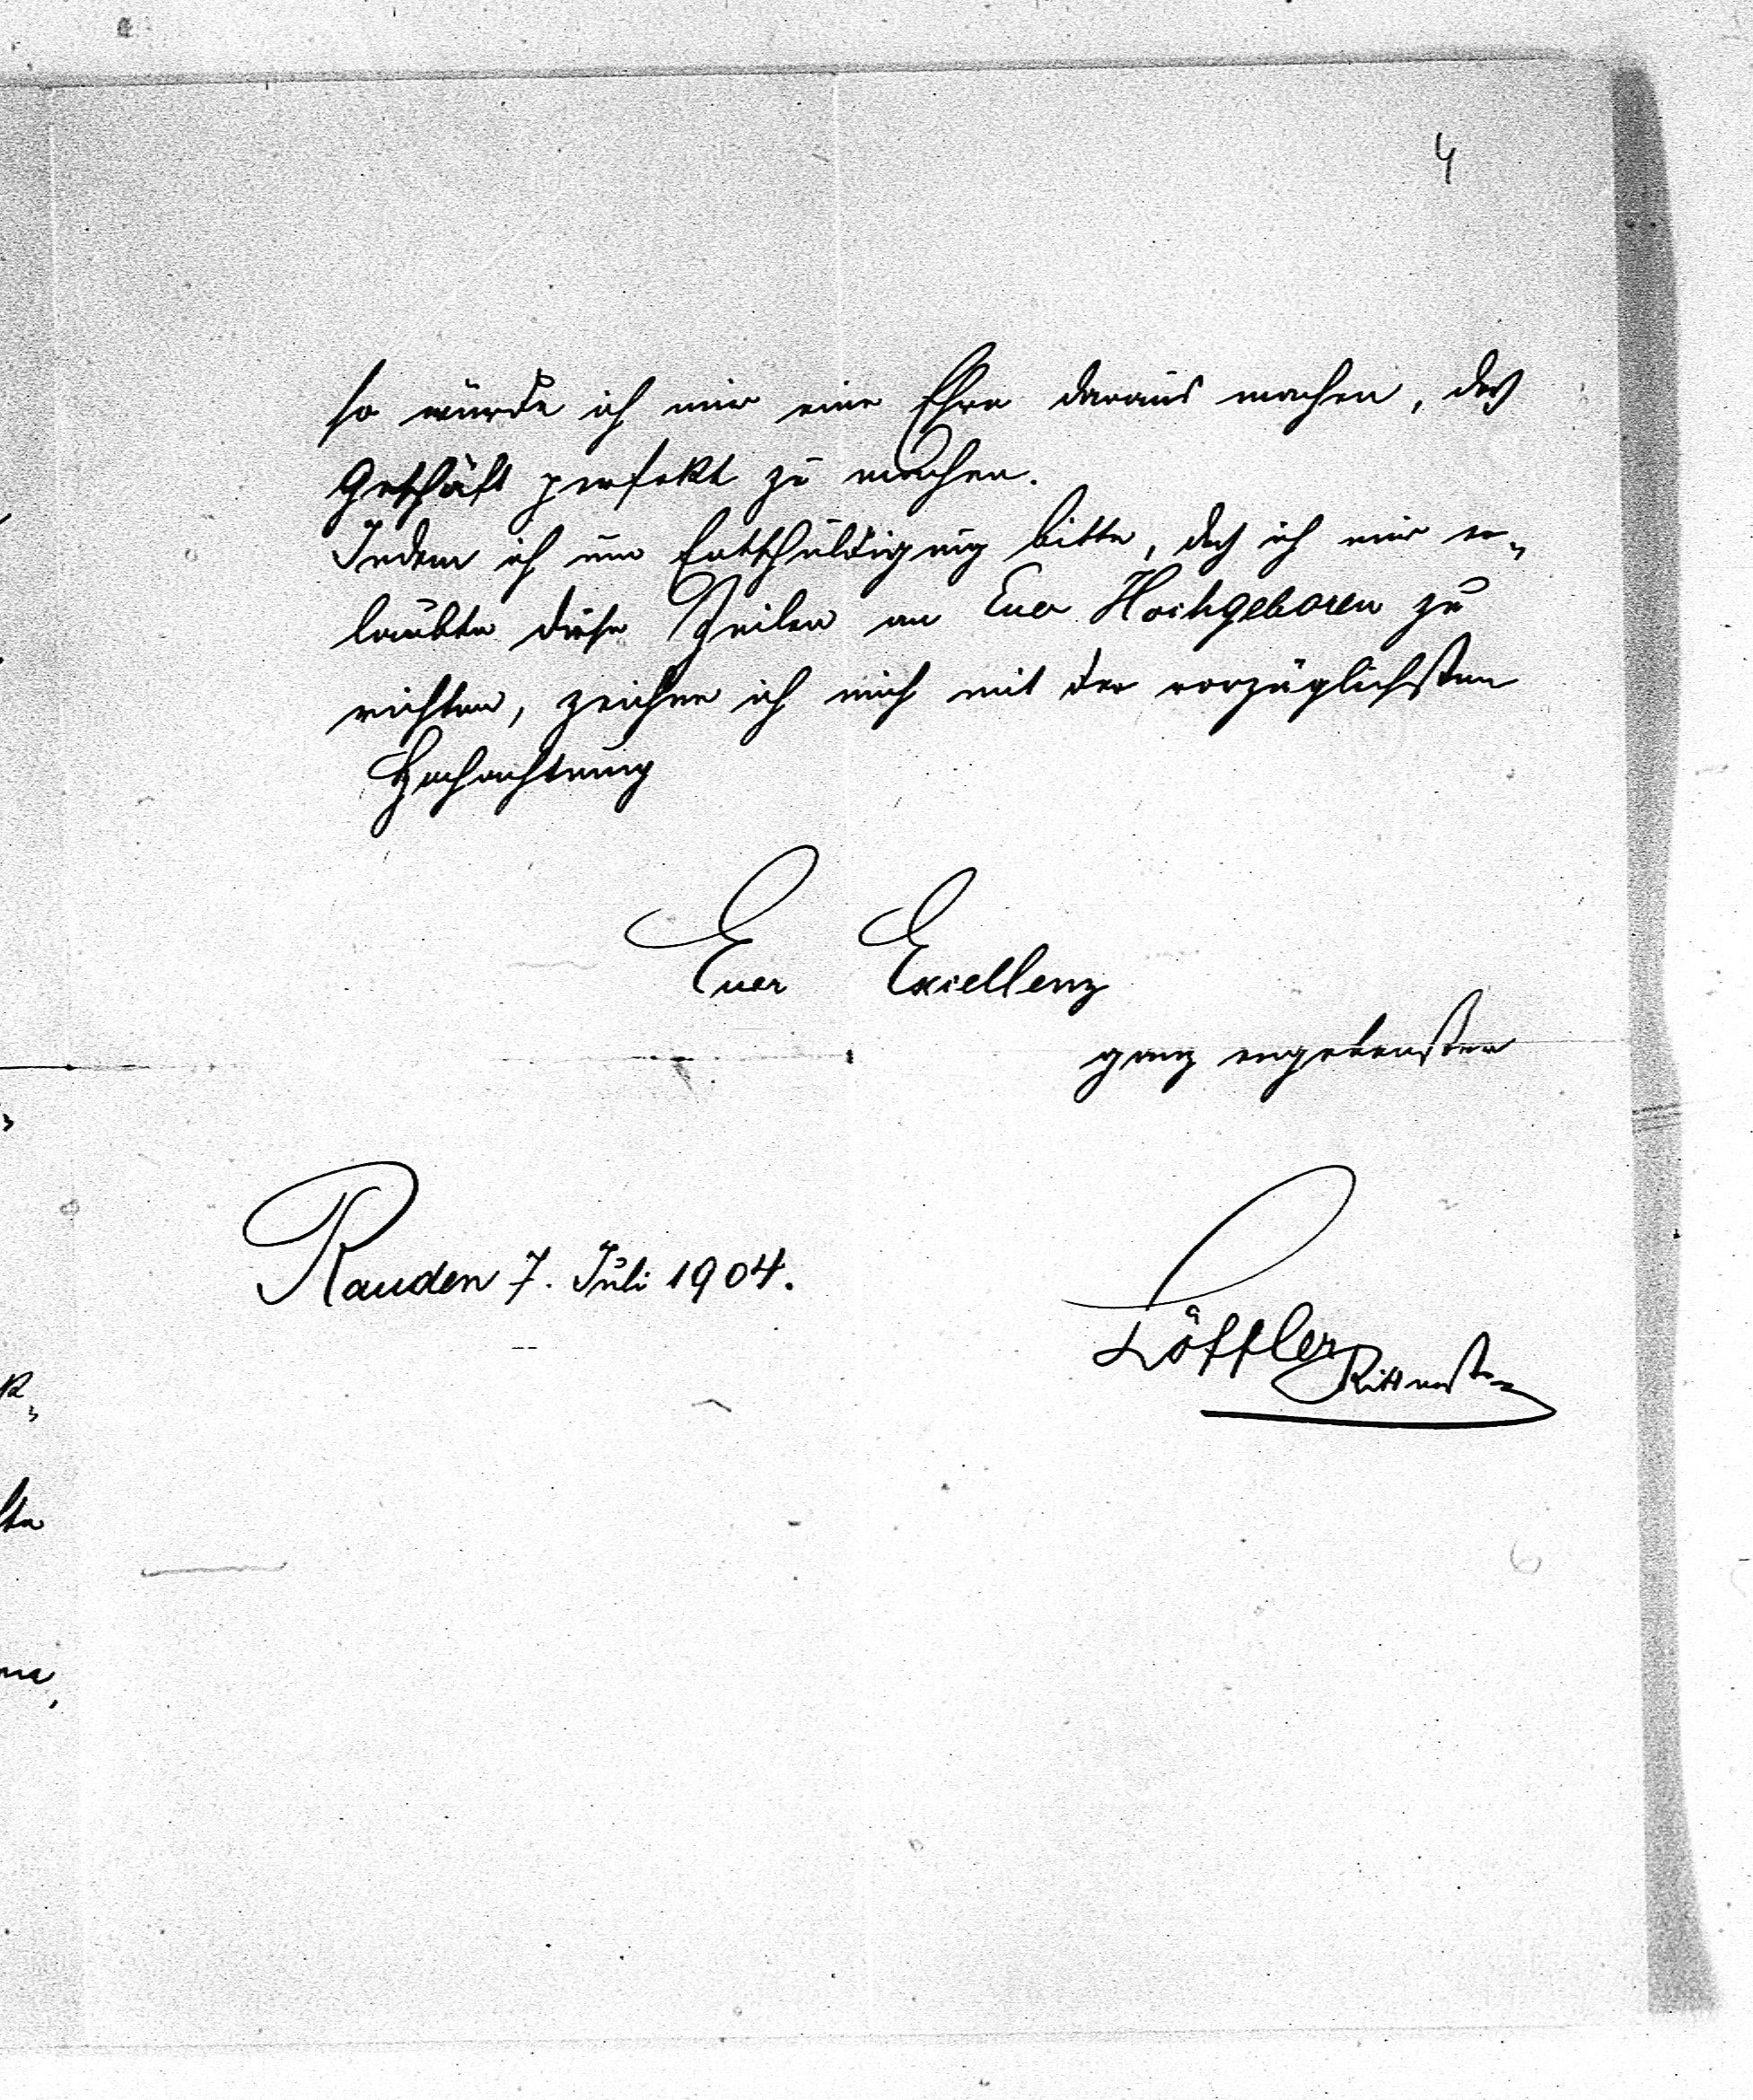 4
so würde ich mir eine Ehre daraus machen, das
Geschäft perfekt zu machen.
Indem ich um Entschuldigung bitte, daß ich mir er-
laubte diese Zeilen an Euer Hochgeboren zu
richten, zeichne ich mich mit der vorzüglichsten
Hochachtung
Euer Excellenz
ganz ergebenster
Rauden 7. Juli 1904.
Löffler
Rittmstr